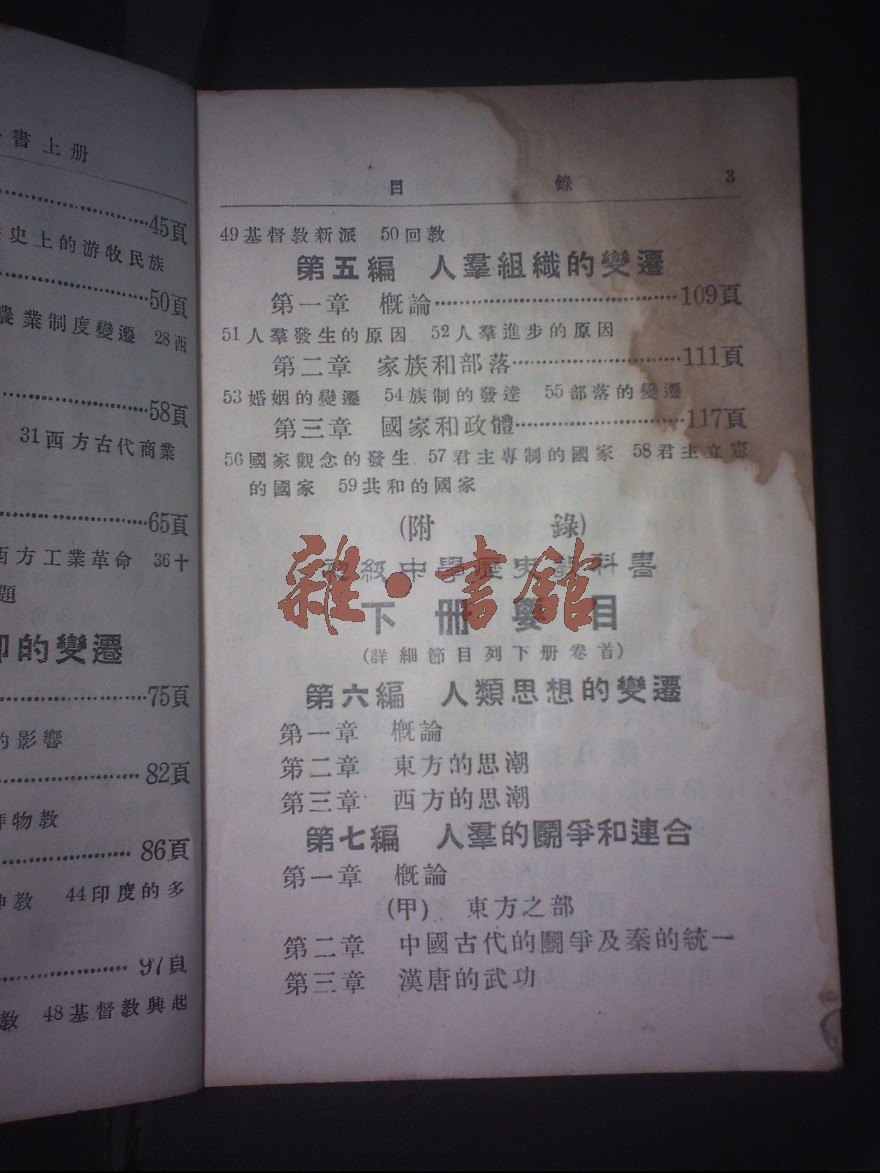 書上册
45頁
史上的游牧民族
50頁
農業制度變遷 28西
58頁
31西方古代商業
65頁
西方工業革命 36十
題
的變遷
75頁
的影響
82頁
物教
86頁
神教 44印度的多
97頁
教 48基督教興起
目 錄 3
49基督教新派 50回教
第五編 人羣組織的變遷
第一章 概論…………109頁
51人羣發生的原因 52人羣進步的原因
第二章 家族和部落…………111頁
53婚姻的變遷 54族制的發達 55部落的變遷
第三章 國家和政體…………117頁
56國家觀念的發生 57君主專制的國家 58君主立憲
的國家 59共和的國家
(附 錄)
初級中學歷史教科書
雜·書館
下册要目
(詳細節目列下册卷首)
第六編 人類思想的變遷
第一章 概論
第二章 東方的思潮
第三章 西方的思潮
第七編 人羣的鬭爭和連合
第一章 概論
(甲) 東方之部
第二章 中國古代的鬭爭及秦的統一
第三章 漢唐的武功